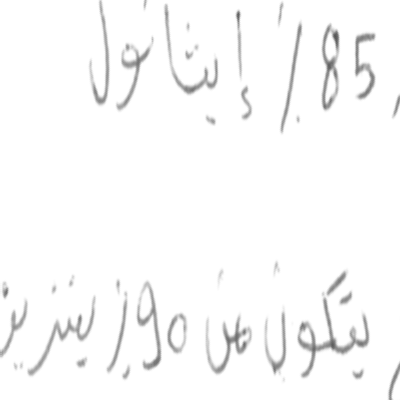 85٪ إيثانول
يتكون من 90٪ بنزين